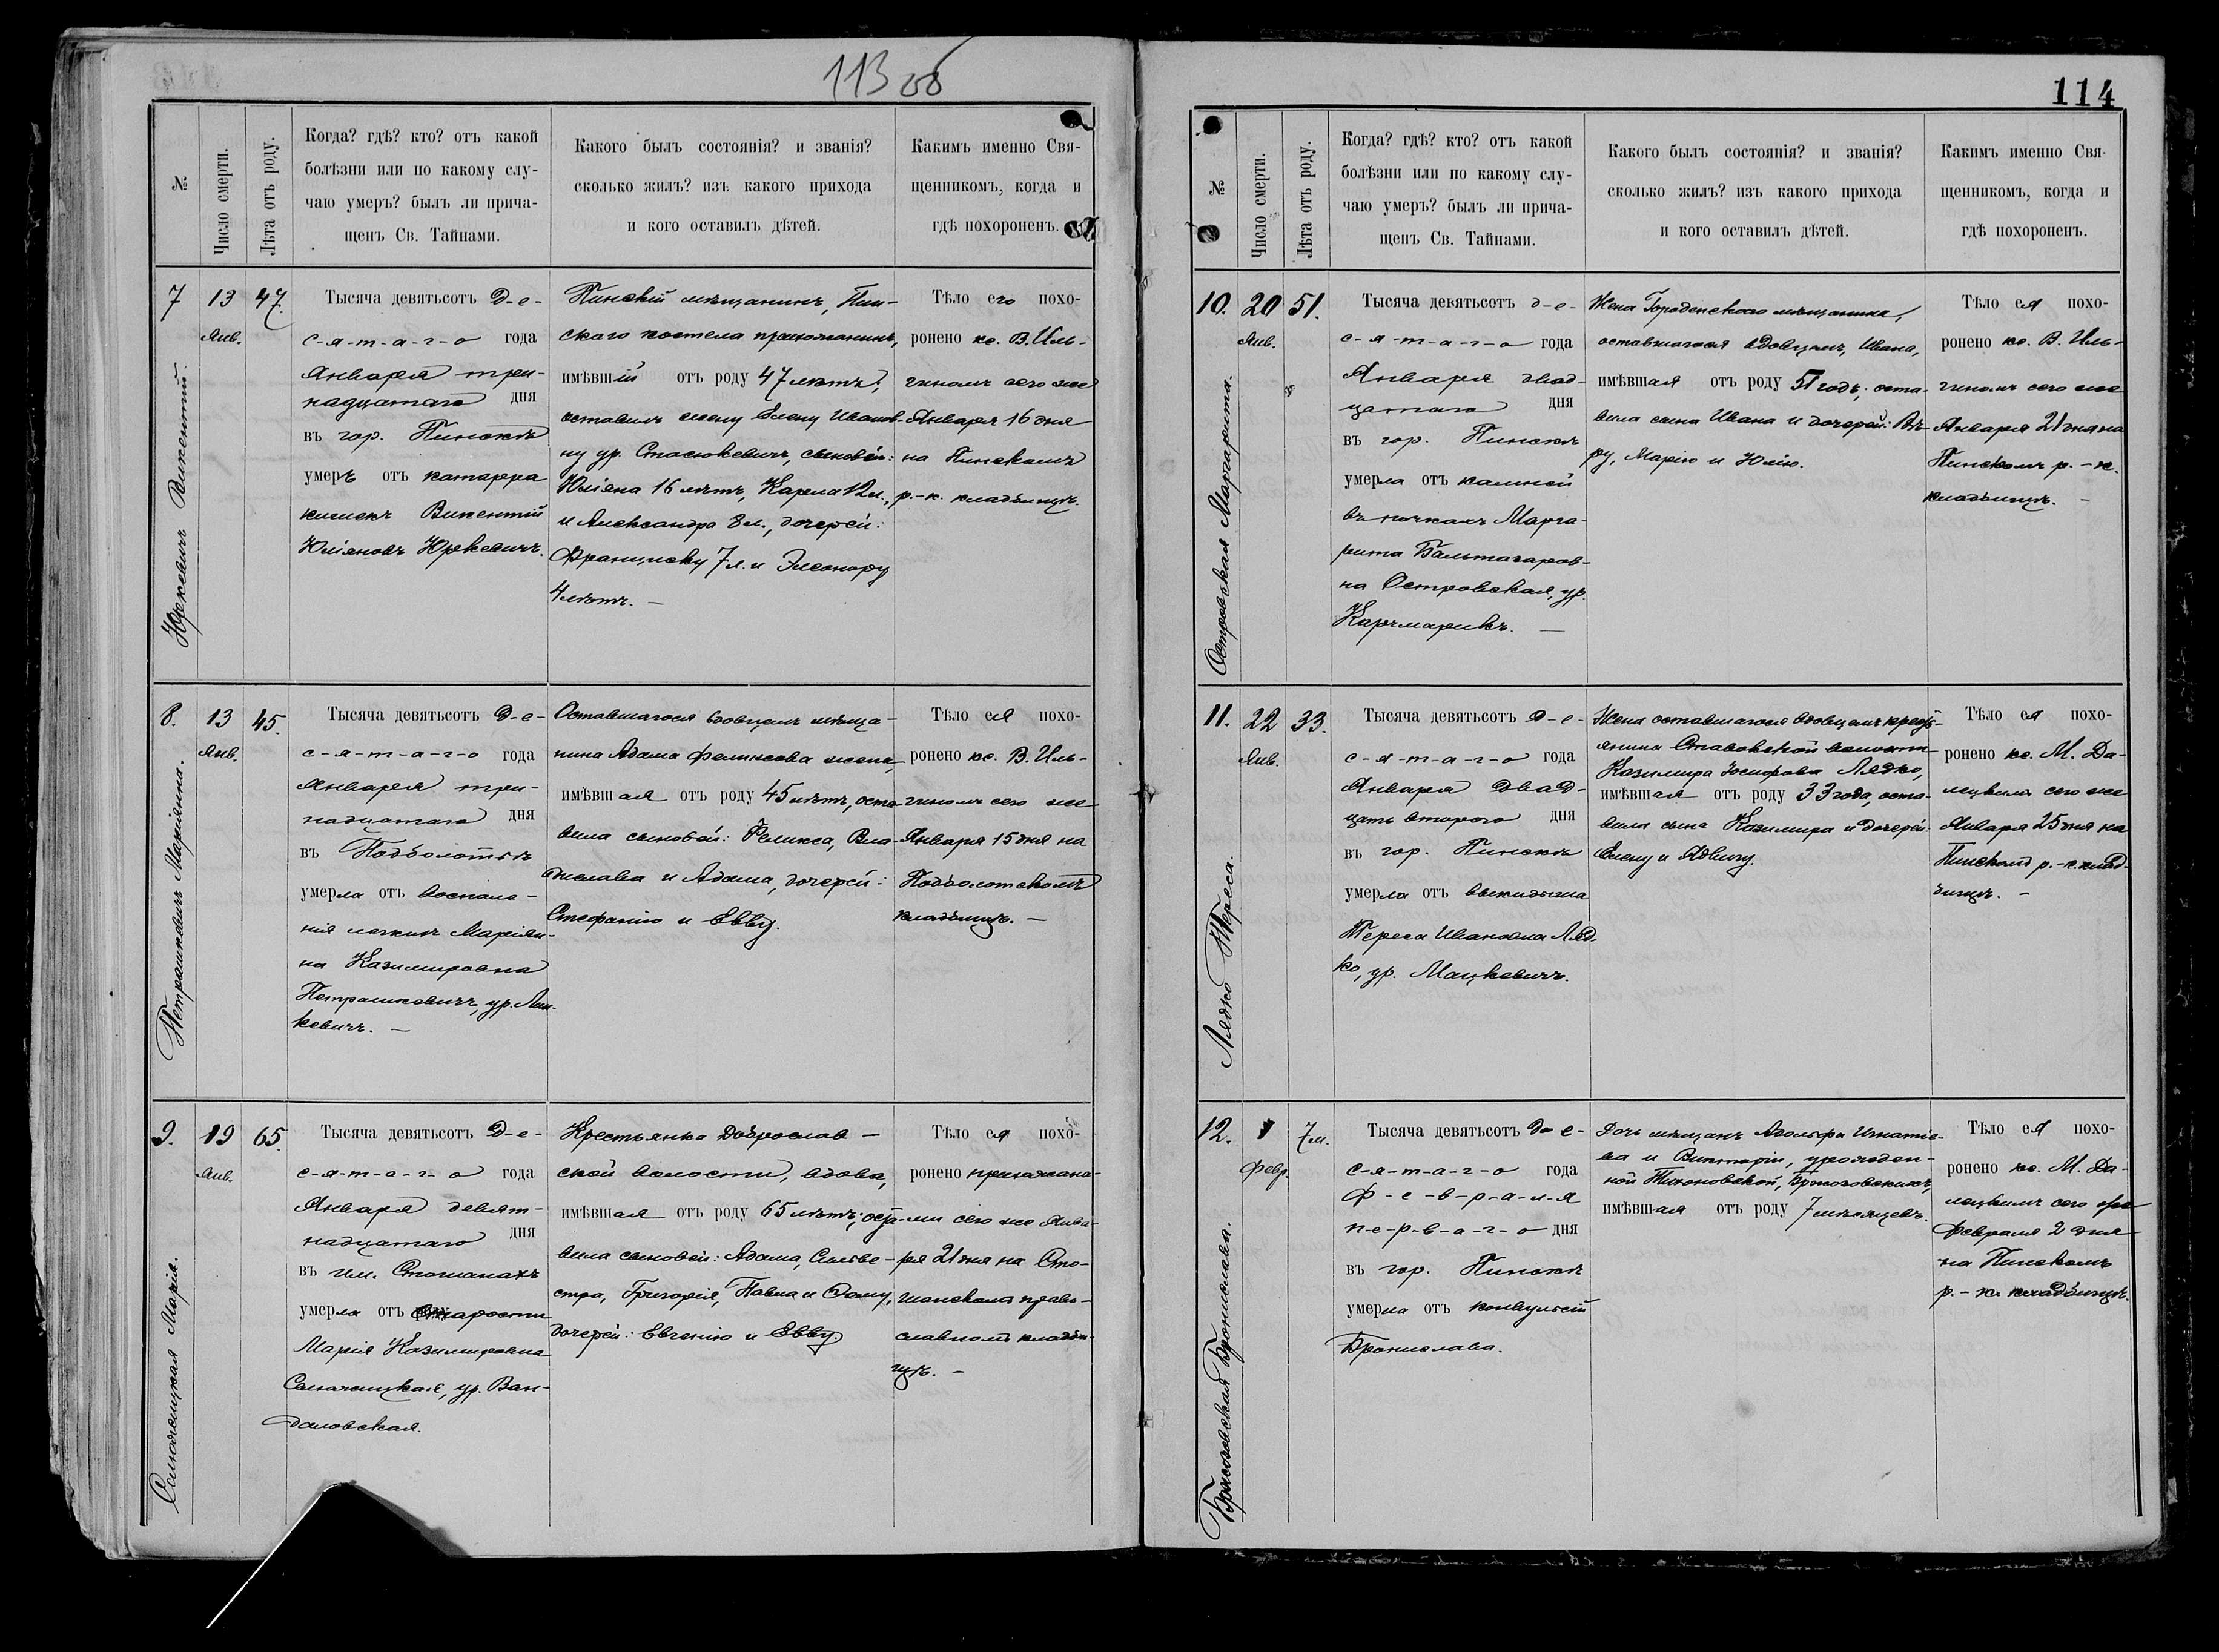 113 об
№
Число смерти.
Лѣта отъ роду.
Когда? гдѣ? кто? отъ какой
болѣзни или по какому слу-
чаю умеръ? былъ ли прича-
щенъ Св. Тайнами.
Какого былъ состоянія? и званія?
сколько жилъ? изъ какого прихода
и кого оставилъ дѣтей.
Какимъ именно Свя-
щенникомъ, когда и
гдѣ похороненъ.
7
Юркевичъ Викентій.
13
Янв.
47.
Тысяча девятьсотъ д-е-
с-я-т-а-г-о года
Января три-
надцатаго дня
въ гор. Пинскѣ
умеръ отъ катарра
кишекъ Викентій
Юліановъ Юркевичъ.
Пинскій мѣщанинъ, Пин-
скаго костела прихожанинъ,
имѣвшій отъ роду 47 лѣтъ;
оставилъ жену Елену Иванов-
ну ур. Стасюкевичъ, сыновей:
Юліяна 16 лѣтъ, Карла 12 л.,
и Александра 8 л., дочерей:
Франциску 7 л. и Элеонору
4 лѣтъ. —
Тѣло его похо-
ронено кс. В. Иль-
гиномъ сего же
Января 16 дня
на Пинскомъ
р.-к. кладбищѣ.
8.
Петрашкевичъ Маріанна.
13
Янв.
45.
Тысяча девятьсотъ д-е-
с-я-т-а-г-о года
Января три-
надцатаго дня
въ Подболотьѣ
умерла отъ воспале-
нія легкихъ Маріан-
на Казимировна
Петрашкевичъ, ур.
кевичъ. —
Оставшагося вдовцемъ мѣща-
нина Адама Феликсова жена,
имѣвшая отъ роду 45 лѣтъ, оста-
вила сыновей: Феликса, Вла-
дислава и Адама, дочерей:
Стефанію и Евву.
Тѣло ея похо-
ронено кс. В. Иль-
гиномъ сего же
Января 15 дня на
Подболотскомъ
кладбищѣ. —
9.
Марія.
19
Янв.
65.
Тысяча девятьсотъ д-е-
с-я-т-а-г-о года
Января девят-
надцатаго дня
въ им. Стошанахъ
умерла отъ старости
Марія Казимировна
ур. Ван-
даловская.
Крестьянка Доброслав-
ской волости, вдова,
имѣвшая отъ роду 65 лѣтъ; оста-
вила сыновей: Адама, Сильве-
стра, Григорія, Павла и Ѳому,
дочерей: Евгенію и Евву.
Тѣло ея похо-
ронено прихожана-
ми сего же Янва-
ря 21 дня на Сто-
шанскомъ право-
славномъ кладби-
щѣ. —
114
№
Число смерти.
Лѣта отъ роду.
Когда? гдѣ? кто? отъ какой
болѣзни или по какому слу-
чаю умеръ? былъ ли прича-
щенъ Св. Тайнами.
Какого былъ состоянія? и званія?
сколько жилъ? изъ какого прихода
и кого оставилъ дѣтей.
Какимъ именно Свя-
щенникомъ, когда и
гдѣ похороненъ.
10.
Островская Маргарита.
20
Янв.
51.
Тысяча девятьсотъ д-е-
с-я-т-а-г-о года
Января двад-
цатаго дня
въ гор. Пинскѣ
умерла отъ камней
въ почкахъ Марга-
рита Бальтазаров-
на Островская, ур.
Карчмарикъ. —
Жена Городенскаго мѣщанина,
оставшагося вдовцемъ, Ивана,
имѣвшая отъ роду 51 годъ; оста-
вила сына Ивана и дочерей: Вѣ-
ру, Марію и Юлію.
Тѣло ея похо-
ронено кс. В. Иль-
гиномъ сего же
Января 21 дня на
Пинскомъ р.-к.
кладбищѣ. —
11.
Лядко Тереса.
22
Янв.
33.
Тысяча девятьсотъ д-е-
с-я-т-а-г-о года
Января двад-
цать второго дня
въ гор. Пинскѣ
умерла отъ выкидыша
Тереса Ивановна Ляд-
ко, ур. Мацкевичъ.
Жена оставшагося вдовцемъ крест-
янина Ставокской волости
Казимира Іосифова Лядко,
имѣвшая отъ роду 33 года, оста-
вила сына Казимира и дочерей:
Елену и Ядвигу.
Тѣло ея похо-
ронено кс. М. Да-
лецкимъ сего же
Января 25 дня на
Пинскомъ р.-к. клад-
бищѣ. —
12.
Бржозовская Бронислава.
1
Февр.
7 м.
Тысяча девятьсотъ д-е-
с-я-т-а-г-о года
Ф-е-в-р-а-л-я
п-е-р-в-а-г-о дня
въ гор. Пинскѣ
умерла отъ конвульсій
Бронислава.
Дочь мѣщанъ Адольфа Игнатіе-
ва и Викторіи, урожден-
ной Тихоновской, Бржозовскихъ,
имѣвшая отъ роду 7 мѣсяцевъ.
Тѣло ея похо-
ронено кс. М. Да-
лецкимъ сего же
Февраля 2 дня
на Пинскомъ
р.-к. кладбищѣ.